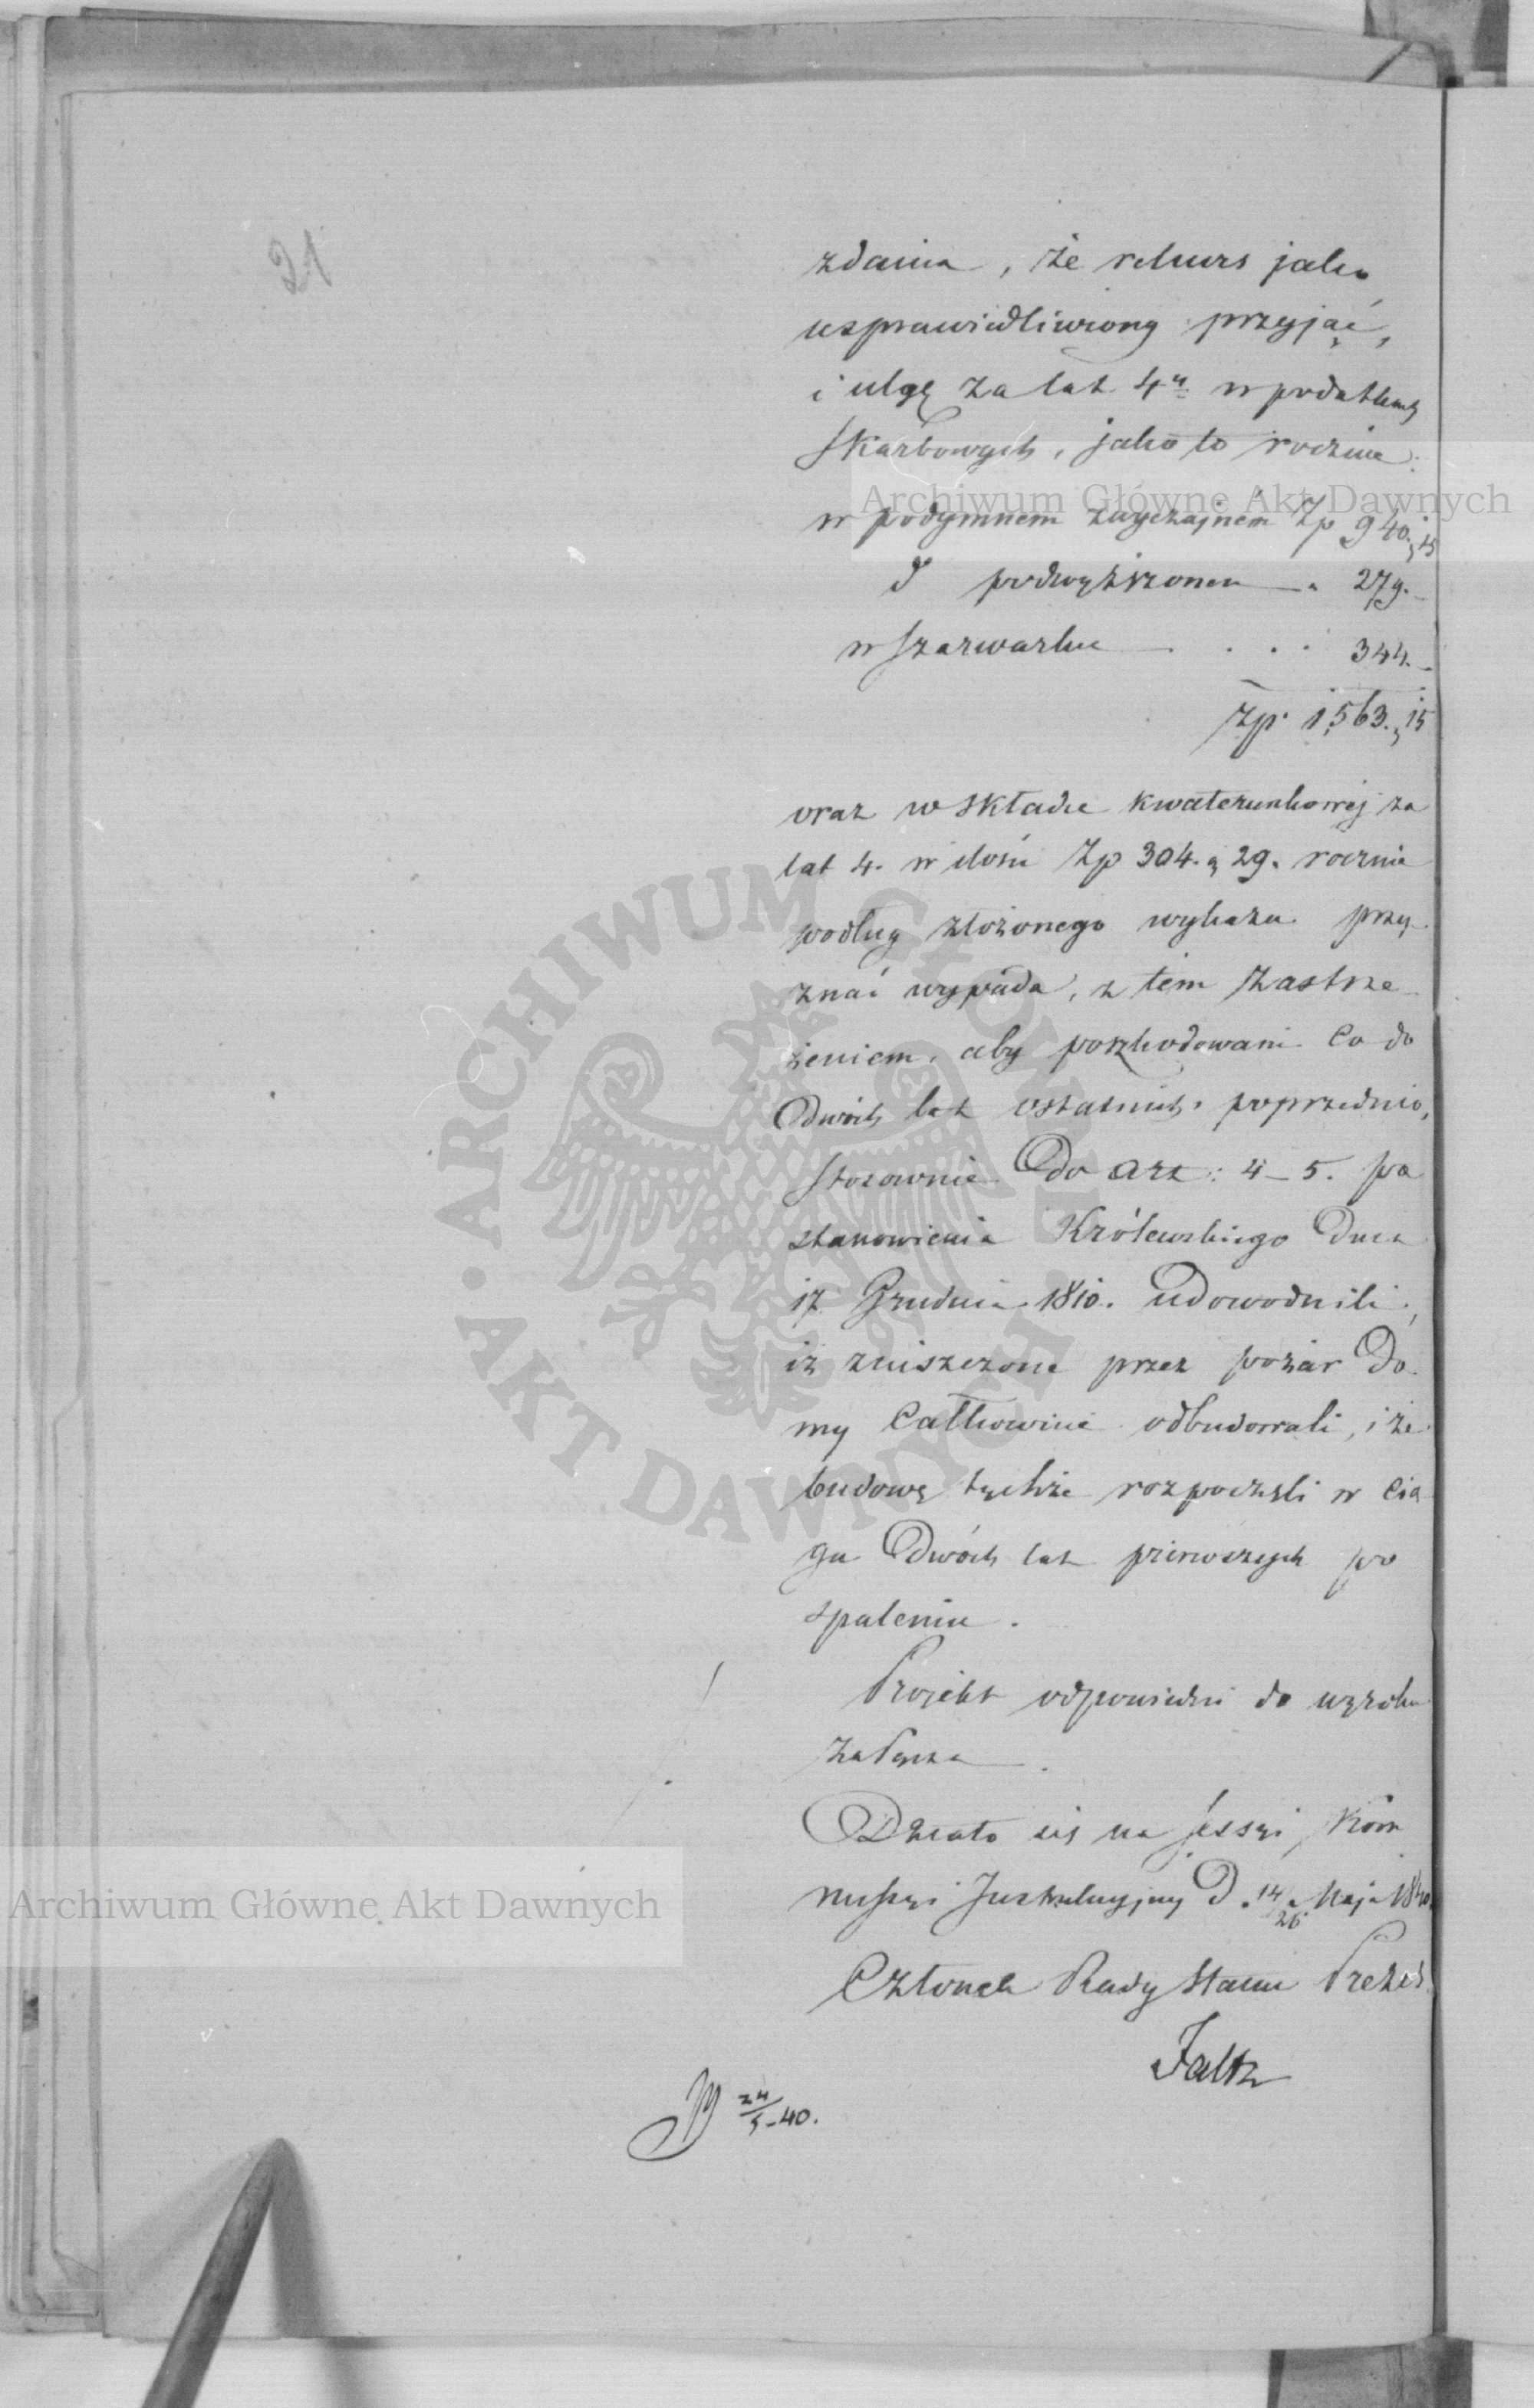 21
zdania, że rekurs jako
usprawiedliwiony przyjąć,
i ulgę za lat 4y w podatkach
skarbowych, jako to rocznie:
w podymnem zwyczajném Zp 940. g 15
d podwyższonem — " 279. -
w szarwarku — . . . 344. -
Zp. 1,563. g 15
oraz w składce kwaterunkowej za
lat 4. w ilości Zp 304. g 29. rocznie
podług złożonego wykazu przy-
znać wypada, z tém zastrze-
żeniem, aby poszkodowani co do
Dwóch lat ostatnich, poprzednio,
stosownie Do Art: 4-5. po
stanowienia Królewskiego Dnia
17 Grudnia 1810. udowodnili,
iż zniszczone przez pożar Do-
my Całkowicie odbudowali, i że
budowę tychże rozpoczęli w cią
gu Dwóch lat pierwszych po
spaleniu.
Projekt odpowiedni do wyroku
załącza.
Działo się na sessyi Kom
missyi Instrukcyjnej D. 14/26 Maja 1840.
Członek Rady Stanu Prezes
Faltz
24/5-40.
Archiwum Główne Akt Dawnych
ARCHIWUM GŁÓWNE
AKT DAWNYCH
Archiwum Główne Akt Dawnych